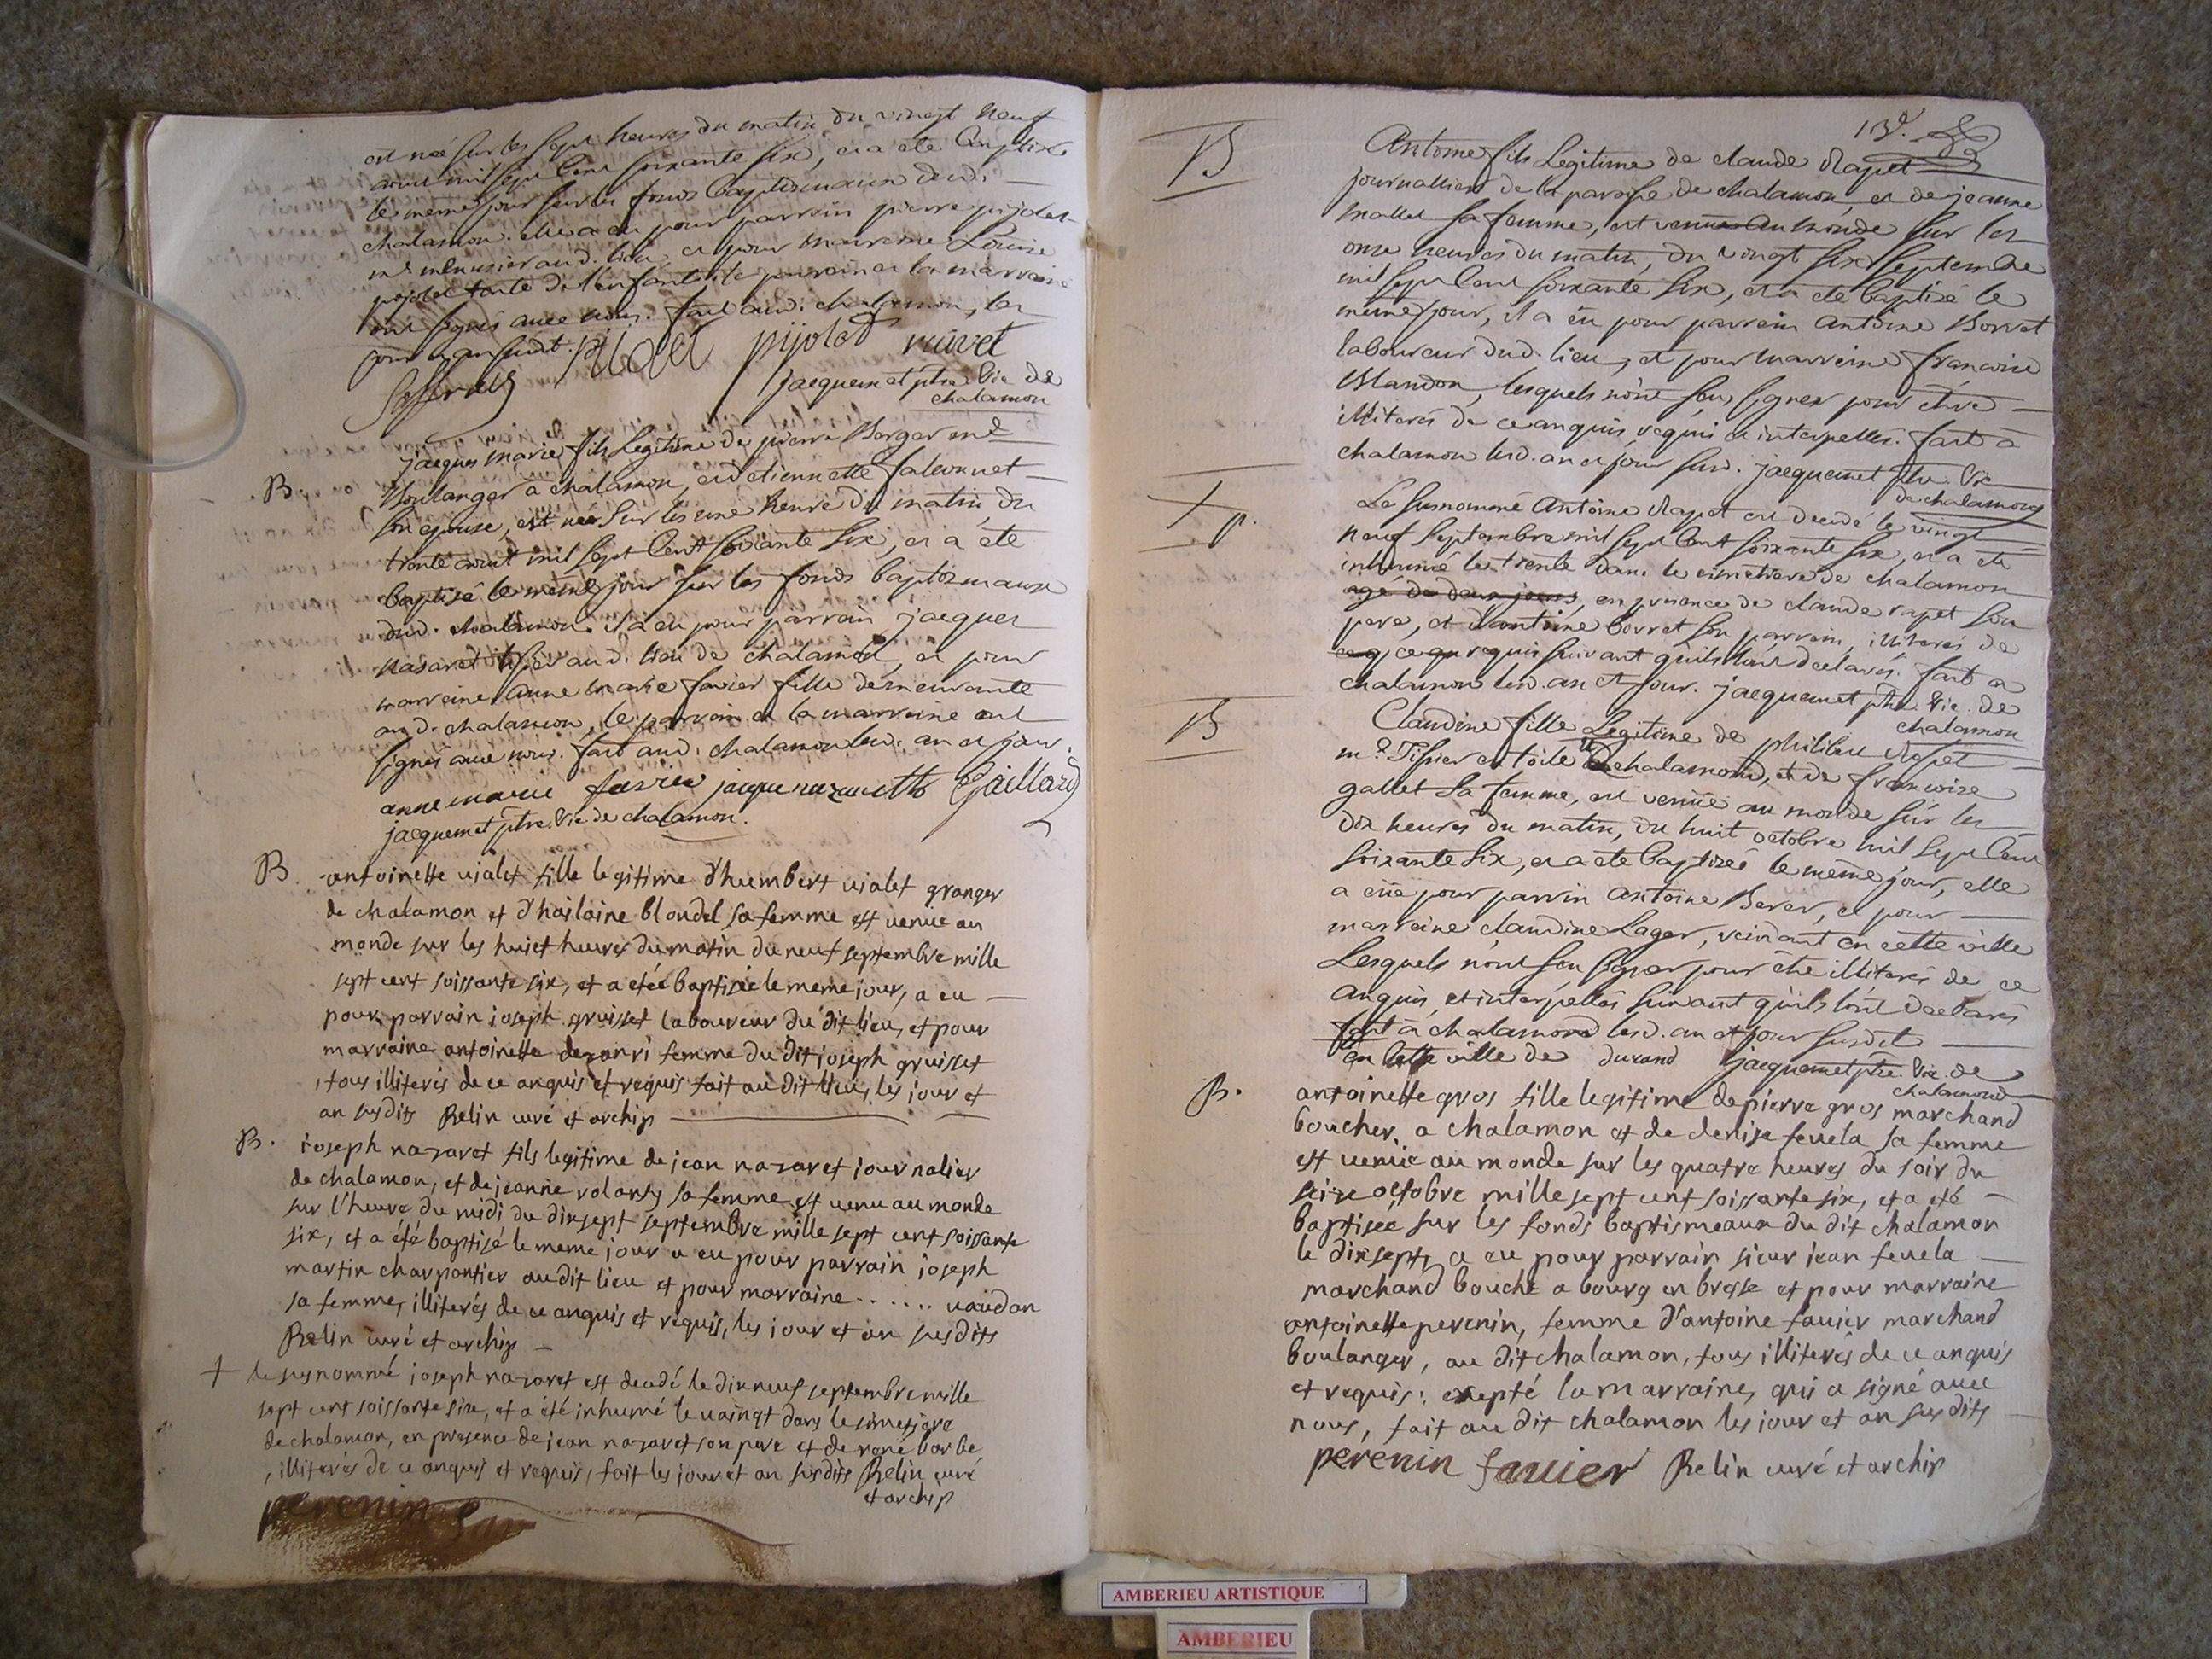 est née sur les sept heures du matin du vingt neuf
aoust mil sept cent soixante six, et a eté baptisée
le meme jour sur les fonds baptismaux dud.
chalamon. elle a eu pour parrain pierre pijolet
md menusier aud. lieu, et pour marreine Louise
pijolet tante de l'enfant, le parrain et la marraine
ont signés avec nous. fait aud. chalamon, les
jour et an susdit. pijolet ruivet
jacquemet ptre Vic de
chalamon
B. jacques marie fils legitime de pierre Berger md
Boulanger a chalamon, et d'etiennette falconnet
son epouse, est née sur les une heure du matin, du
trente aoust mil sept cent soixante six, et a eté
baptisé le meme jour sur les fonds baptismaux
dud. chalamon. il a eu pour parrain jacques
nasaret aud. lieu de chalamon, et pour
marreine anne marie favier fille demeurante
aud. chalamon, le parrain et la marraine ont
signés avec nous. fait aud. chalamon led. an et jour.
anne marie favier jacque Gaillard
jacquemet ptre Vic de chalamon.
B. antoinette uialet fille legitime d'humbert uialet granger
de chalamon et d'hailaine blondel sa femme est venue au
monde sur les huiet heures du matin du neuf septembre mille
sept cent soissante six, et a etée baptisée le meme jour, a eu
pour parrain joseph gruisset laboureur du dit lieu, et pour
marraine antoinette femme du dit joseph gruisset
, tous illiterés de ce anquis et requis fait au dit lieu, les jour et
an susdits Relin curé et archip
B. joseph nazaret fils legitime de jean nazaret journalier
de chalamon, et de jeanne volansy sa femme est venu au monde
sur l'heure du midi du dixsept septembre mille sept cent soissante
six, et a été baptisé le meme jour a eu pour parrain joseph
martin charpantier au dit lieu et pour marraine ...... uaudan
sa femme, illiterés de ce anquis et requis, les jour et an susdits
Relin curé et archip
+ le susnommé joseph nazaret est decedé le dixneuf septembre mille
sept cent soissante six, et a été inhumé le uaingt dans le simetiere
de chalamon, en presence de jean nazaret son pere et de rené barbe
, illiterés de ce anquis et requis, fait les jour et an susdits Relin curé
et archip
perenin
13e.
B Antoine fils Legitime de claude Rapet
journallier de la paroisse de chalamon, et de jeanne
mallet sa femme, est venue au monde sur les
onze heures du matin, du vingt six septembre
mil sept cent soixante six, et a eté baptisé le
meme jour, il a eu pour parrain antoine Borret
laboureur dud. lieu, et pour marreine francoise
Blandon, lesquels n'ont sçu signer pour etre
illiterés de ce anquis requis et interpellés. fait a
chalamon lesd. an et jour susd. jacquemet ptre Vic
de chalamon
+ p. Le susnommé Antoine Rapet est decedé le vingt
neuf septembre mil sept cent soixante six, et a eté
inhumé le trente dans le cimetiere de chalamon
agé de deux jours, en presence de claude rapet son
pere, et d'antoine borret son parrain, illiterés de
ce q ce qu requis suivant qu'ils l'ont declarés. fait a
chalamon lesd. an et jour. jacquemet ptre Vic. de
chalamon
B Claudine fille Legitime de philibert Rapet
md. Tissier en toile a chalamond, et de francoise
gallet sa femme, est venue au monde sur les
dix heures du matin, du huit octobre mil sept cent
soixante six, et a eté baptisée le meme jour, elle
a eue pour parrin antoine Berer, et pour
marreine claudine Lager, veivant en cette ville
Lesquels n'ont sçu signer pour étre illiterés de ce
anquis, et interpellés suivant qu'ils l'ont declarés
fait a chalamond lesd. an et jour susdit
en cette ville de durand jacquemet ptre Vic de
chalamond
B. antoinette gros fille legitime de pierre gros marchand
boucher, a chalamon et de denise feuela sa femme
est uenue au monde sur les quatre heures du soir du
seize octobre mille sept cent soissante six, et a eté
baptisée sur les fonds baptismeaux du dit chalamon
le dixsept, a eu pour parrain sieur jean feuela
marchand bouché a bourg en bresse et pour marraine
antoinette perenin, femme d'antoine fauier marchand
boulanger, au dit chalamon, tous illiterés de ce anquis
et requis: exepté la marraine, qui a signé auec
nous, fait au dit chalamon les jour et an susdits
perenin fauier Relin curé et archip
AMBERIEU ARTISTIQUE
AMBERIEU